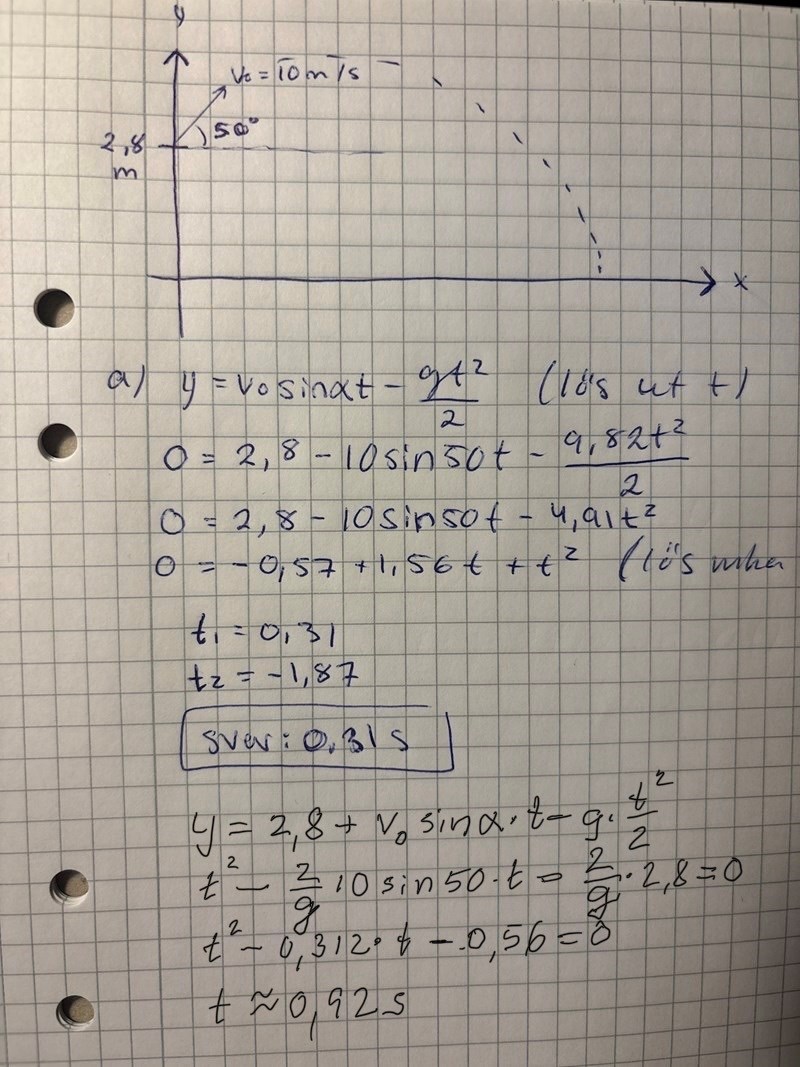 y
v₀ = 10 m/s
50°
2,8
m
x
a) y = v₀ sinαt - gt²/2 (lös ut t)
0 = 2,8 - 10 sin50t - 9,82t²/2
0 = 2,8 - 10 sin50t - 4,91t²
0 = -0,57 + 1,56t + t² (lös mha
t₁ = 0,31
t₂ = -1,87
svar: 0,31 s
y = 2,8 + v₀ sinα·t - g·t²/2
t² - 2/g 10 sin50·t - 2/g·2,8 = 0
t² - 0,312·t - 0,56 = 0
t ≈ 0,92 s